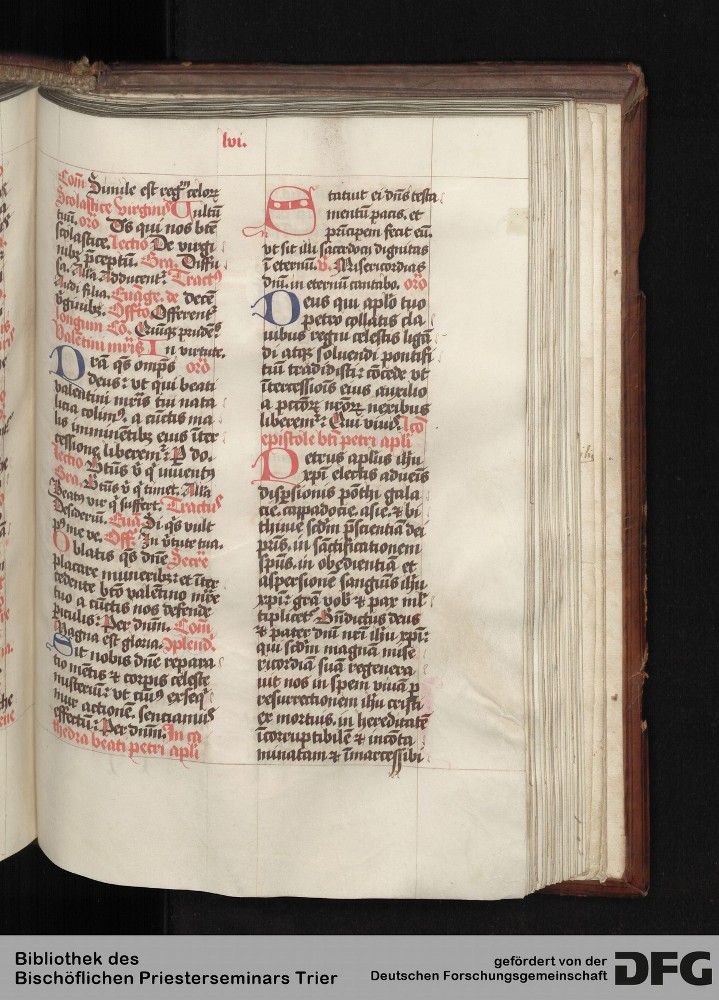 lvi.
Com̄ Simile est regn̄ celoꝝ
Scolastice virginis Vultū
tuū. or̄o Ds qui nos btē
scolastice. lectio De virgi
nibꝫ p̄ceptū. Gra. Diffu
sa. Alla Adducentꝰ. Tractꝰ
Audi filia. Euāge. de decē
v̄ginibꝫ. Offr̄o Offerentꝰ
Cō. Quīqꝫ prudēs
valētini mr̄is In virtute.
Pr̄a qs om̄ps or̄o
deus: vt qui beati
valentini mr̄is tui nata
licia colimꝰ. a cūctis ma
lis imminētibꝫ eius īter
cessione liberem̄: P do.
lectio Btūs v̄ q̄ inuentꝰ
Gra. Btūs v̄ q̄ timet. Alla
Beatꝰ vir q̄ suffert. Tractus
Desideriū. Euā. Si qs vult
pꝰ me ve. Off. In v̄tute tua.
Oblatis qs dn̄e Secre
placare muneribꝫ: et īter
cedente bt̄o valētino mr̄e
tuo a cūctis nos defende
piculis: Per dnm. Com̄
Magna est gloria. Cōplend.
Sit nobis dn̄e repara
tio mētis ⁊ corpis celeste
misteriū: vt cuiꝰ exseqͥ
mur actionē. sentiamus
effectū: Per dnm. In ca
thedra beati petri apli
Statuit ei dn̄s testa
mentū pacis. et
prīncipem fecit eū.
vt sit illi sacerdocij dignitas
ī eternū. v. Misericordias
dnī. in eternū cantabo. or̄o
Deus qui aplo tuo
petro collatis cla
uibus regni celestis ligā
di atqꝫ soluendi pontifi
tiū tradidisti: cōcede vt
ītercessiōis eius auxilio
a pcc̄oꝝ nr̄oꝝ nexibus
liberem̄: Qui viuis. lco̅
epistole bt̄i petri apli
Petrus aplus ihū
xp̄i electis aduēis
dispersionis pōthi gala
cie. cappadocie. asie. ⁊ bi
thinie scdm p̄scientiā dei
pr̄is. in sāctificationem
sp̄us. in obediētiam et
aspersione sanguīs ihū
xp̄i: grā vob̄ ⁊ pax ml̄
tiplicetꝰ Bn̄dictus deus
⁊ pater dnī nr̄i ihū xp̄i:
qui scdm magnā mise
ricordiā suā regenera
uit nos in spem viuā p
resurrectionem ihū cristi
ex mortuis. in hereditatē
īcorruptibilē ⁊ incōta
minatam ⁊ īmarcessibi
Bibliothek des
Bischöflichen Priesterseminars Trier
gefördert von der
Deutschen Forschungsgemeinschaft
DFG